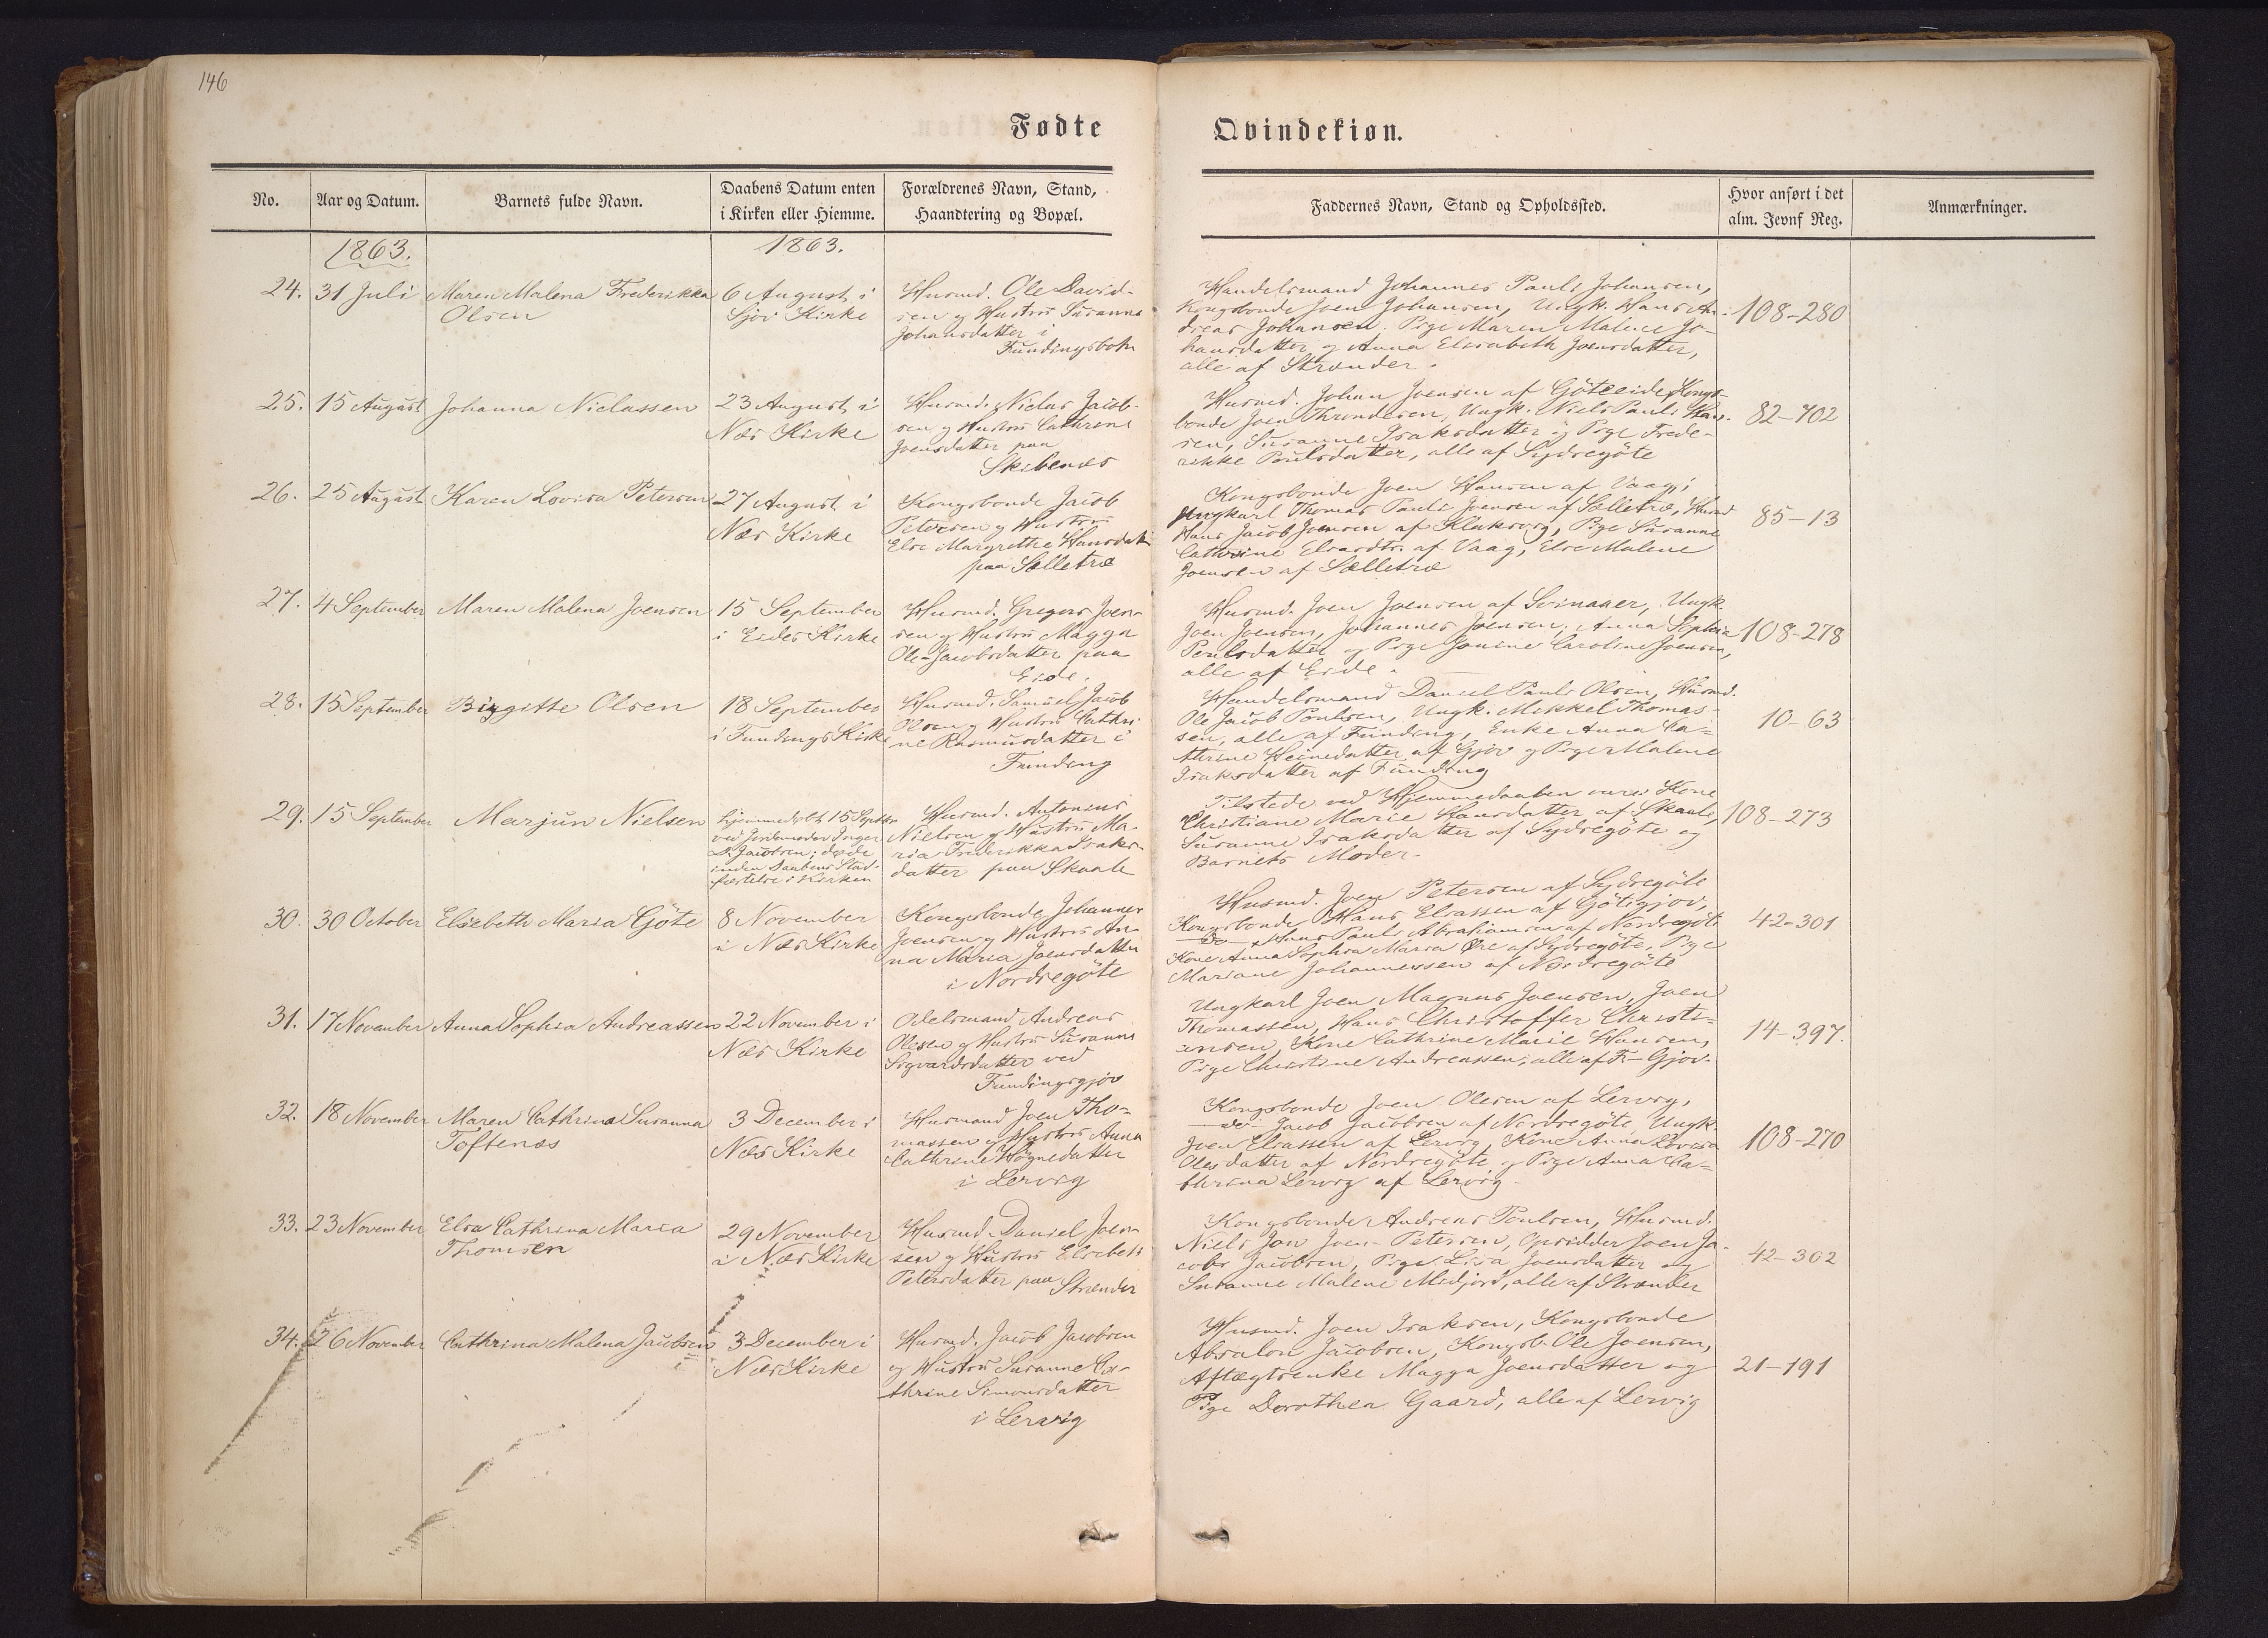 146
Fødte
Qvindekiøn.
No.
Aar og Datum.
Barnets fulde Navn.
Daabens Datum enten
i Kirken eller Hiemme.
Forældrenes Navn, Stand,
Haandtering og Bopæl.
Faddernes Navn, Stand og Opholdssted.
Hvor anført i det
alm. Jevnf Reg.
Anmærkninger.
1863.
1863.
24.
31 Juli
Maren Malena Frederikka
Olsen
6 August i
Sjov Kirke
Husmd. Ole David-
sen og Hustru Susanna
Johansdatter i
Fundingsbotn
Handelsmand Johannes Pauli Johansen,
Kongsbonde Joen Johansen, Ungk. Hans An-
dreas Johansen. Pige Maren Malene Jo-
hansdatter og Anna Elisabeth Joensdatter,
alle af Strænder.
108-280
25.
15 August
Johanna Niclassen
23 August i
Næs Kirke
Husmd. Niclas Jacob-
sen og Hustru Cathrine
Joensdatter paa
Skibenæs
Husmd. Johan Joensen af Göteeide, Kongs-
bonde Joen Throndesen, Ungk. Niels Pauli Han-
sen, Susanne Isaksdatter og Pige Frede-
rikke Poulsdatter, alle af Sydregöte
82-702
26.
25 August
Karen Lovisa Petersen
27 August i
Næs Kirke
Kongsbonde Jacob
Petersen og Hustru
Else Margrethe Hansdatt.
paa Sælletræ
Kongsbonde Joen Hansen af Vaag,
Ungkarl Thomas Pauli Joensen af Sælletræ, Husmd
Hans Jacob Joensen af Klaksvig, Pige Susanne
Cathrine Eliasdtr. af Vaag, Else Malene
Joensen af Sælletræ
85-13
27.
4 September
Maren Malena Joensen
15 September
i Eides Kirke
Husmd. Gregers Joen-
sen og Hustru Magga
Ole-Jacobsdatter paa
Eide.
Husmd. Joen Joensen af Svinaaer, Ungk.
Joen Joensen, Johannes Joensen, Anna Sophia
Poulsdatter og Pige Janine Caroline Joensen,
alle af Eide.
108-278
28.
15 September
Birgitte Olsen
18 September
i Fundings Kirke
Husmd. Samuel Jacob
Olsen og Hustru Cathri-
ne Rasmusdatter i
Funding
Handelsmand Daniel Pauli Olsen, Husmd.
Ole Jacob Poulsen, Ungk. Mikkel Thomas-
sen, alle af Funding, Enke Anna Ca-
thrine Heinesdatter af Gjov og Pige Malene
Isaksdatter af Funding
10-63
29.
15 September
Marjun Nielsen
hjemmedøbt 15 Septbr
ved Jordemoder Inger
S. Jacobsen; døde
inden Daabens Stad-
fæstelse i Kirken
Husmd. Antonius
Nielsen og Hustru Ma-
ria Frederikka Isaks-
datter paa Skaale
Tilstede ved Hjemmedaaben vare: Kone
Christiane Marie Hansdatter af Skaale,
Susanne Isaksdatter af Sydregöte og
Barnets Moder.
108-273
30.
30 October
Elisebeth Maria Göte
8 November
i Næs Kirke
Kongsbonde Johannes
Joensen og Hustru An-
na Maria Joensdatter
i Nordregöte
Husmd. Joen Petersen af Sydregöte
Kongsbonde Hans Eliassen af Götegjov,
do Hans Pauli Abrahamsen af Nordregöte
Kone Anna Sophia Maria Øre af Sydregöte, Pige
Mariane Johannessen af Nordregöte
42-301
31.
17 November
Anna Sophia Andreassen
22 November i
Næs Kirke
Odelsmand Andreas
Olesen og Hustru Susanne
Sigvardsdatter ved
Fundingsgjov
Ungkarl Joen Magnus Joensen, Joen
Thomassen, Hans Christoffer Christi-
ansen, Kone Cathrine Marie Hansen,
Pige Christine Andreassen, alle af F-Gjov.
14-397.
32.
18 November
Maren Cathrina Susanna
Toftenæs
3 December i
Næs Kirke
Husmand Joen Tho-
massen og Hustru Anna
Cathrine Högnedatter
i Lervig
Kongsbonde Joen Olesen af Lervig,
do Jacob Jacobsen af Nordregöte, Ungk.
Joen Eliassen af Lervig, Kone Anna Lovisa
Olesdatter af Nordregöte og Pige Anna Ca-
thrina Lervig af Lervig.
108-270
33.
23 November
Elsa Cathrina Maria
Thomsen
29 November
i Næs Kirke
Husmd. Daniel Joen-
sen og Hustru Elsebeth
Petersdatter paa Strænder
Kongsbonde Andreas Poulsen, Husmd.
Niels Jon Joen-Petersen, Opsidder Joen Ja-
cobs Jacobsen, Pige Lisa Joensdatter og
Susanne Malene Midjord, alle af Strænder
42-302
34.
26 November
Cathrina Malena Jacobsen
3 December i
Næs Kirke
Husmd. Jacob Jacobsen
og Hustru Susanne Ca-
thrine Simonsdatter
i Lervig
Husmd. Joen Isaksen, Kongsbonde
Absalon Jacobsen, Kongsb. Ole Joensen,
Aftægtsenke Magga Joensdatter og
Pige Dorothea Gaard, alle af Lervig
21-191